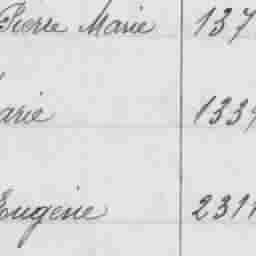 Pierre Marie 137
arie 133
Eugène 231